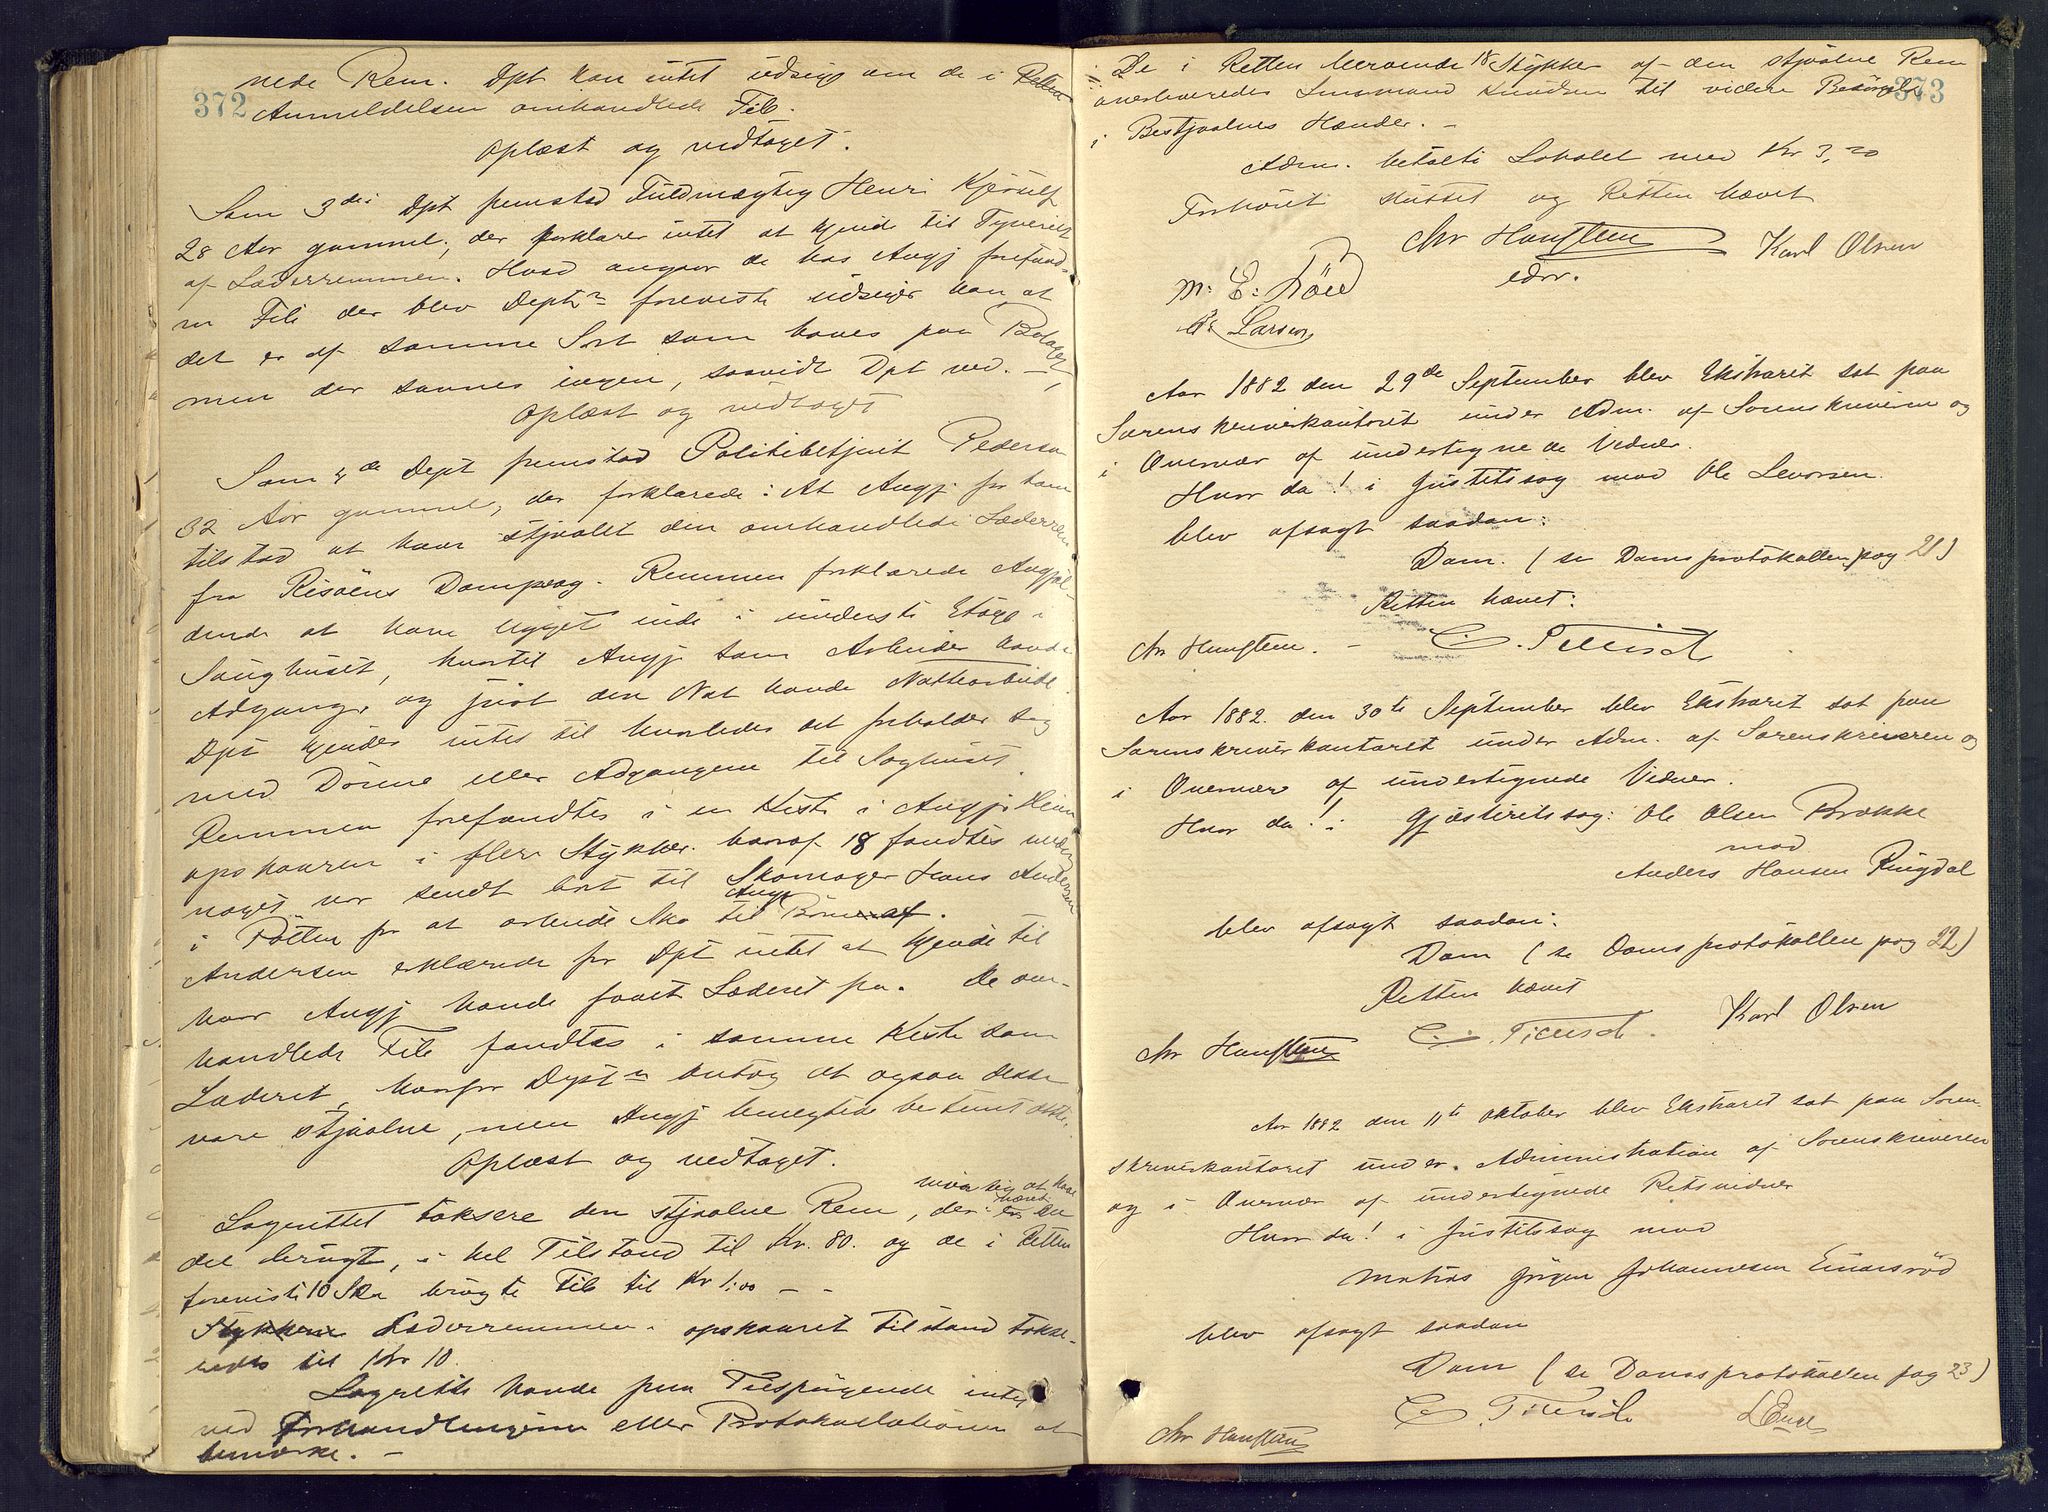 372
nede Rem. Dpt kan intet udsige om de i Retten
Anmeldelsen omhandlede File.
Oplæst og vedtaget.
Som 3die Dpt fremstod Fuldmægtig Henri Kjørulf
28 Aar gammel, der forklarer intet at kjende til Tyveriet
af Læderremmen. Hvad angaar de hos Angj forefund-
ne File der blev Deptn foreviste udsiger han, at
det er af samme Sort som haves paa Bruget,
men der savnes ingen, saavidt Dpt ved. -
Oplæst og vedtaget
Som 4de Dept fremstod Politibetjent Pedersen
32 Aar gammel, der forklarede: At Angj for ham
tilstod at have stjaalet den omhandlede Læderrem
fra Risöens Dampsag. Remmen forklarede Angjæl-
dende at have ligget inde i underste Etage i
Saughuset, hvortil Angj som Arbeider havde
Adgang, og just den Nat havde Nattearbeide.
Dpt kjender intet til hvorledes det forholder sig
med Dörene eller Adgangene til Saghuset.
Remmen forefandtes i en Kiste i Angjs Hjem
opskaaren i flere Stykker. hvoraf 18 fandtes medens
noget var sendt bort til Skomager Hans Andersen
i Pötten for at arbeide Sko til Angj Börn.
Andersen erklærede for Dpt intet at kjende til
hvor Angj havde faaet Læderet fra. De om-
handlede File fandtes i samme Kiste som
Læderet, hvorfor Dpt n antog at ogsaa disse
vare stjaalne, men Angj benegtede bestemt dette.
Oplæst og vedtaget.
Lagrettet taksere den stjaalne Rem, der
det brugt, i hel Tilstand til Kr. 80. og de i Retten
foreviste 10 Stk brugte File til Kr 1.00 - -
Læderremmen i opskaaret Tilstand takse-
redes til Kr 10.
Lagrette havde paa Tilspörgende intet
ved Forhandlingerne eller Protokollationen at
bemærke. -
373
De i Retten værende 18 Stykker af den stjaalne Rem
overleveredes Lensmand Knudsen til videre Besörgelse
i Bestjaalnes Hænder. -
Adm. betalte Lokalet med Kr 3,20
Forhöret sluttet og Retten hævet
Chr Hansteen
edsv.
Karl Olsen
M. E. Röed
Larsen
Aar 1882 den 29de September blev Ekstraret sat paa
Sorenskriverkontoret under Adm. af Sorenskriveren og
i Overvær af undertegnede Vidner.
Hvor da! i Justitssag mod Ole Levorsen.
blev afsagt saadan:
Dom. (se Domsprotokollen pag 21)
Retten hævet:
Chr Hansteen. - C. Tillisch
Aar 1882. den 30te September blev Ekstraret sat paa
Sorenskriverkontoret under Adm. af Sorenskriveren og
i Overvær af undertegnede Vidner.
Hvor da! i Gjæsteretssag: Ole Olsen Brække
mod
Anders Hansen Ringdal
blev afsagt saadan:
Dom (se Domsprotokollen pag 22)
Retten hævet
Chr Hansteen C. Tillisch. Karl Olsen
Aar 1882 den 11te Oktober blev Ekstraret sat paa Soren-
skriverkontoret under Administration af Sorenskriveren
og i Overvær af undertegnede Retsvidner
Hvor da! i Justitssag mod
Matias Jörgen Johannesen Einarsröd
blev afsagt saadan
Dom (se Domsprotokollen pag 23)
Chr Hansteen C. Tillisch